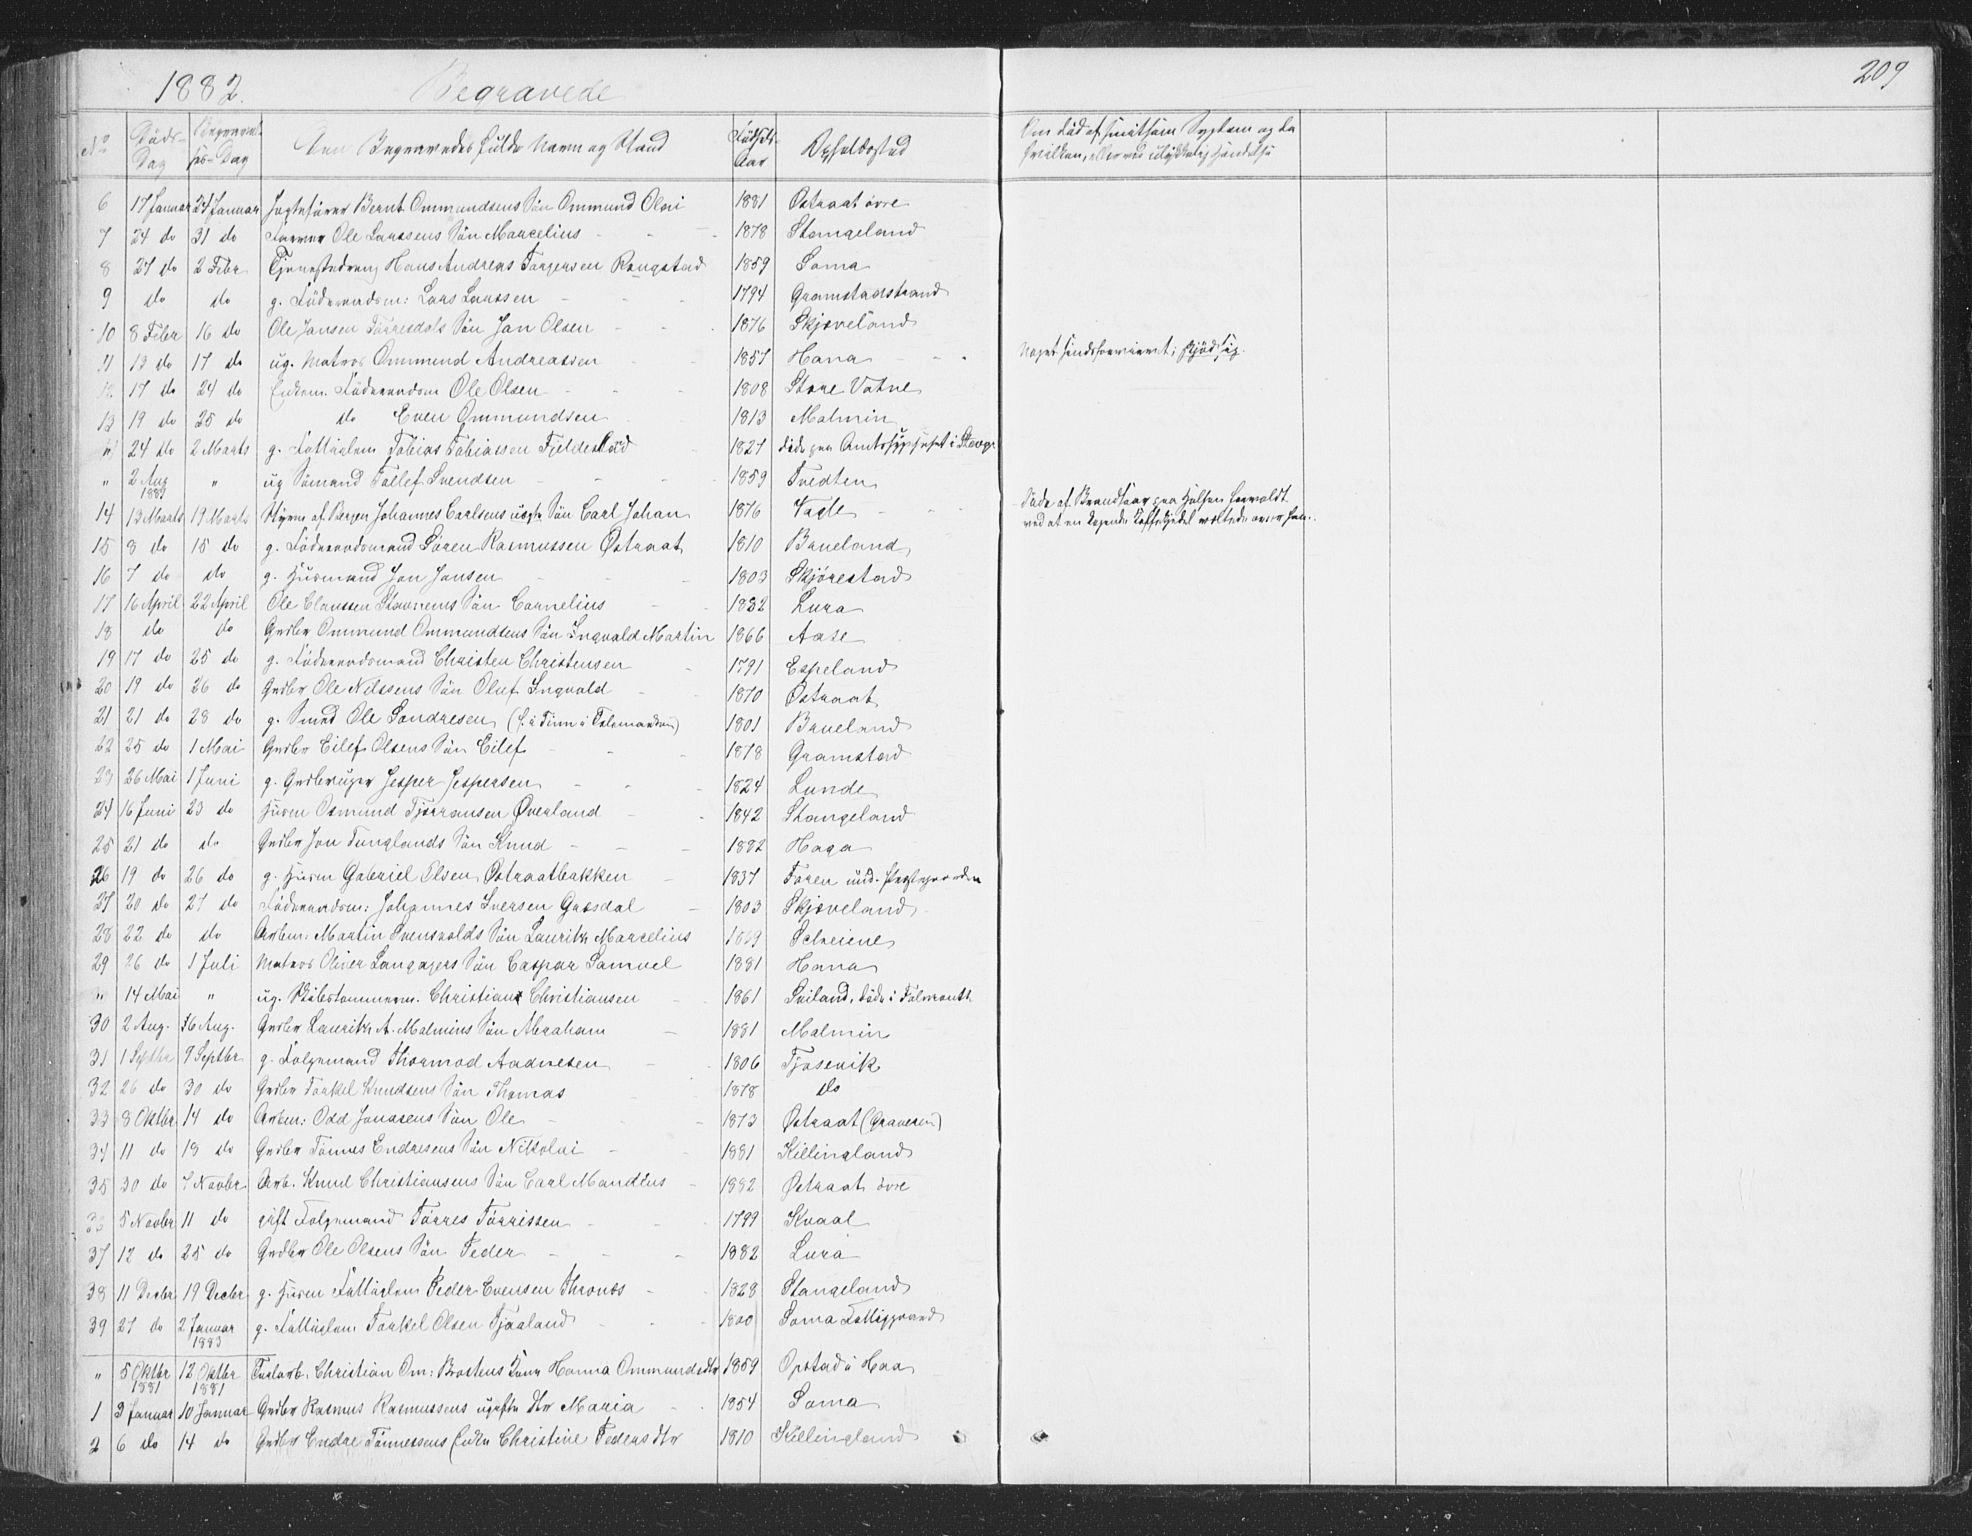 209
1882. Begravede
No | Døds-Dag | Begravelses-Dag | Den Begravedes fulde Navn og Stand | Fødsels-Aar | Opholdssted | Om død af smitsom Sygdom og da
hvilken, eller ved ulykkelig Hændelse
6 | 17 Januar | 24 Januar | Jagtefører Bernt Ommundsens Søn Ommund Olai | 1881 | Østraat øvre
7 | 24 do | 31 do | Ole Larssens Søn Marcelius | 1878 | Stangeland
8 | 27 do | 2 Febr | Tjenestedreng Hans Andreas Torgersen Rougstad | 1859 | Soma
9 | do | do | g. Føderaadsm: Lars Larssen | 1794 | Gramstadstrand
10 | 8 Febr | 16 do | Ole Jansen Tørresdals Søn Jan Olsen | 1876 | Skjæveland
11 | 13 do | 17 do | ug. Matros Ommund Andreassen | 1857 | Hana | noget sindsforvirret; skjød sig.
12 | 17 do | 24 do | Enkem. Føderaadsm Ole Olsen | 1808 | Store Vatne
13 | 19 do | 25 do | do Even Ommundsen | 1813 | Malmin
" | 24 do | 2 Marts | g. Fattiglem Tobias Tobiassen Fjeldestad | 1827 | døde paa Amtssygehuset i Stavgr
" | 2 Aug 1881 | " | ug Sømand Tollef Svendsen | 1859 | Tvedten
14 | 13 Marts | 19 Marts | Johannes Carlsens uægte Søn Carl Johan | 1876 | Vagle | Døde af Brandsaar paa Halsen forvoldt
ved at en kogende Kaffekjedel væltede over ham.
15 | 8 do | 15 do | g. Føderaadsmand Søren Rasmussen Østraat | 1810 | Brueland
16 | 7 do | do | g. Husmand Jon Jonsen | 1803 | Skjørestad
17 | 16 April | 22 April | Ole Claussen Stavnems Søn Cornelius | 1882 | Lura
18 | do | do | Grdbr Ommund Ommundsens Søn Ingvald Martin | 1866 | Aase
19 | 17 do | 25 do | g. Føderaadsmand Christen Christensen | 1791 | Espeland
20 | 19 do | 26 do | Grdbr Ole Nilssens Søn Oluf Ingvald | 1870 | Østraat
21 | 21 do | 28 do | g. Smed Ole Sondresen (f. i Tinn i Telemarken) | 1801 | Brueland
22 | 25 do | 1 Mai | Grdbr Eilef Olsens Søn Eilef | 1878 | Gramstad
23 | 26 Mai | 1 Juni | g. Grdbruger Jesper Jespersen | 1824 | Lunde
24 | 16 Juni | 23 do | Husm Osmund Tjørransen Øverland | 1842 | Stangeland
25 | 21 do | do | Grdbr Jon Tunglands Søn Knud | 1882 | Haga
26 | 19 do | 26 do | g. Husm Gabriel Olsen Østraatbakken | 1837 | Foren und. Prestegaarden
27 | 20 do | 27 do | Føderaadsm: Johannes Iversen Græsdal | 1803 | Skjæveland
28 | 22 do | do | Arbm: Martin Svensvolds Søn Lauritz Marcelius | 1869 | Scheiene
29 | 26 do | 1 Juli | Matros Oliver Langagers Søn Caspar Samuel | 1881 | Hana
" | 14 Mai | " | ug. Christian Christiansen | 1861 | Sviland, døde i Falmouth
30 | 2 Aug. | 16 Aug. | Grdbr Lauritz A. Malmins Søn Abraham | 1881 | Malmin
31 | 1 Septbr | 9 Septbr | g. Folgemand Thormod Aadnesen | 1806 | Tjosevik
32 | 26 do | 30 do | Grdbr Torkel Knudsens Søn Thomas | 1878 | do
33 | 8 Oktbr | 14 do | Arbm: Odd Jonasens Søn Ole | 1873 | Østraat (Graveren)
34 | 11 do | 18 do | Grdbr Tønnes Endresens Søn Nikolai | 1881 | Killingland
35 | 30 do | 7 Novbr | Arb. Knud Christiansens Søn Carl Mandius | 1882 | Østraat øvre
36 | 5 Novbr | 11 do | gift Folgemand Tørres Tørrissen | 1799 | Kvaal
37 | 12 do | 25 do | Grdbr Ole Olsens Søn Peder | 1882 | Lura
38 | 11 Decbr | 19 Decbr | g. Husm Fattiglem Peder Evensen Thronæs | 1828 | Stangeland
39 | 27 do | 2 Januar 1883 | g. Fattiglem Torkel Olsen Tjaaland | 1800 | Soma Fattiggaard
" | 5 Oktbr 1881 | 12 Oktbr 1881 | Christian Om: Brostens Kone Hanna Ommundsdtr | 1859 | Opstad i Haa
1 | 3 Januar | 10 Januar | Grdbr Rasmus Rasmussens ugifte Dtr Maria | 1854 | Soma
2 | 6 do | 14 do | Grdbr Endre Tønnessens Enke Christine Pedersdtr | 1810 | Killingland